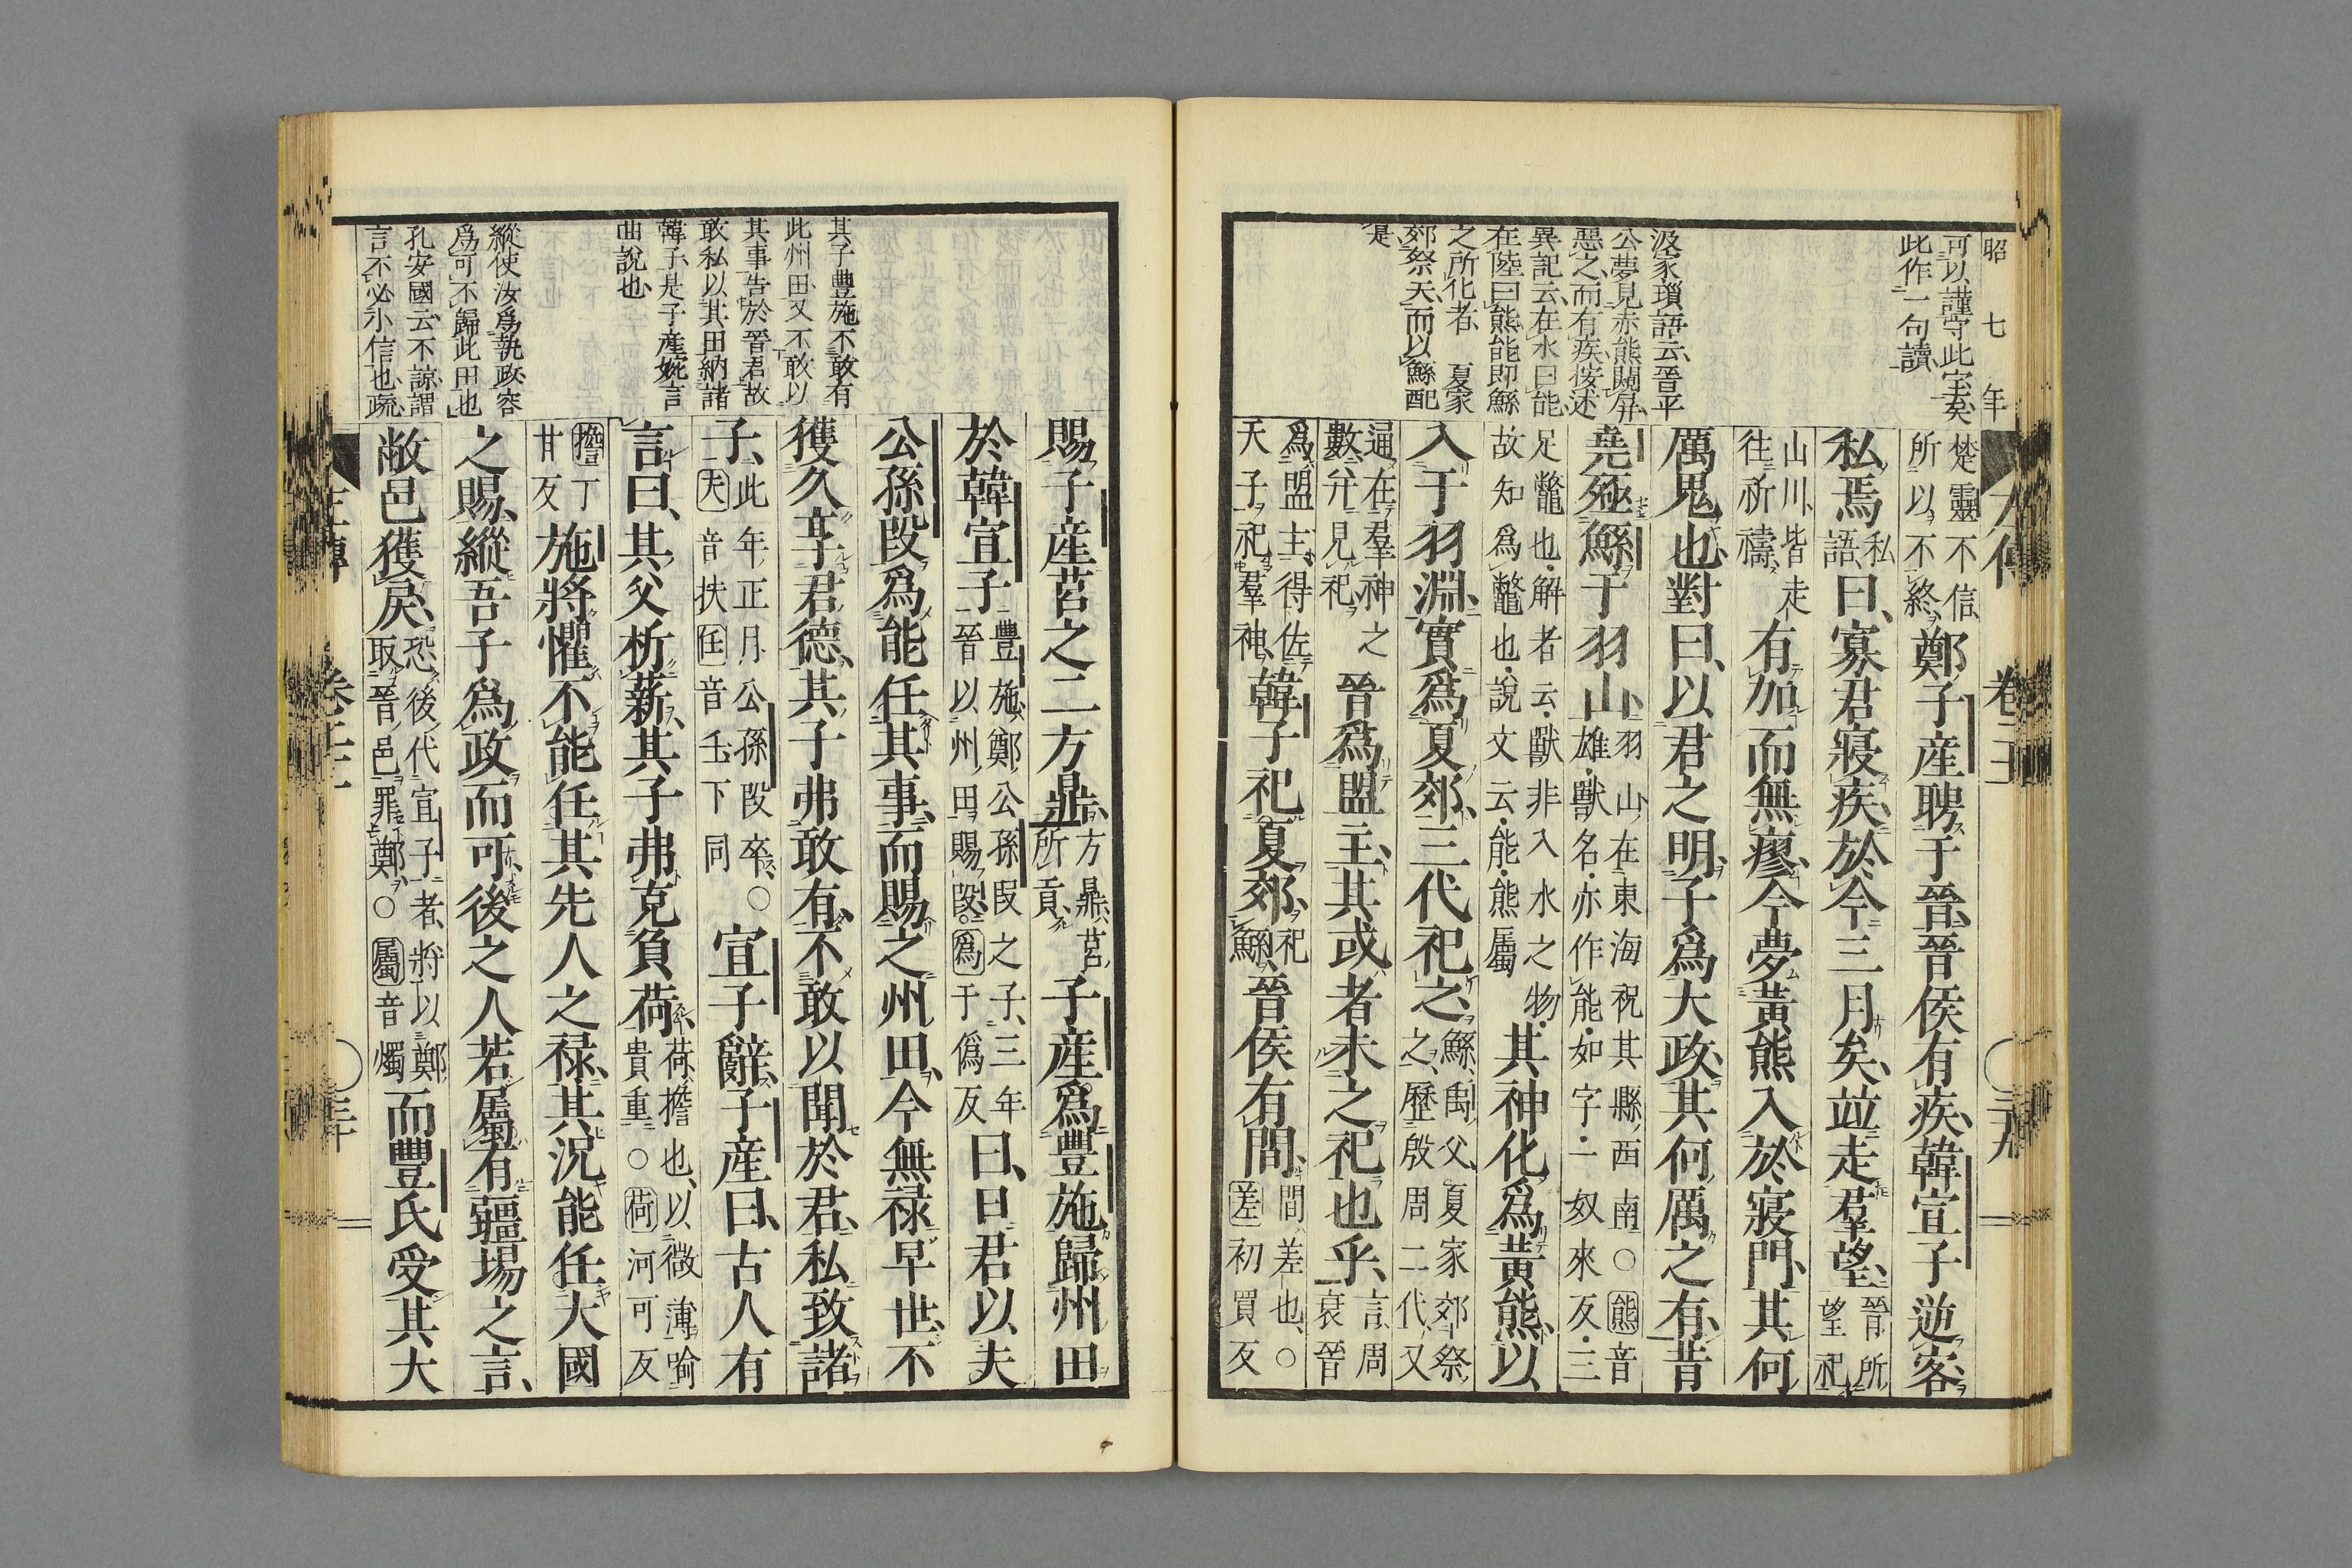 昭七年
可以謹守此宝矣
此作一句讀
汲冢瑣語云晉平
公夢見赤熊闚屏
惡之而有疾按述
異記云在水曰能
在陸曰熊能即鯀
之所化者 夏家
郊祭天而以鯀配
是
楚靈不信
所以不終鄭子産聘于晉晉侯有疾韓宣子逆客
私焉私語曰寡君寢疾於今三月矣並走羣望晉所望祀
山川皆走
往祈禱有加而無瘳今夢黃熊入於寢門其何
厲鬼也對曰以君之明子爲大政其何厲之有昔
堯殛鯀于羽山羽山在東海祝其縣西南○熊音
雄獸名亦作能如字一奴來反三
足鼈也解者云獸非入水之物
故知爲鼈也說文云能熊屬其神化爲黃熊以
入于羽淵實爲夏郊三代祀之鯀禹父夏家郊祭
之歷殷周二代又
通在羣神之
數并見祀晉爲盟主其或者未之祀也乎言周衰晉
爲盟主得佐
天子祀羣神韓子祀夏郊祀鯀晉侯有間間差也○差初買反
左傳 卷二十二 三十九
其子豐施不敢有
此州田又不敢以
其事告於晉君故
敢私以其田納諸
韓子是子産婉言
曲說也
縱使汝爲執政容
爲可不歸此田也
孔安國云不諒謂
言不必小信也疏
賜子産莒之二方鼎方鼎莒所貢子産爲豐施歸州田
於韓宣子豐施鄭公孫段之子三年
晉以州田賜段○爲于僞反曰日君以夫
公孫段爲能任其事而賜之州田今無祿早世不
獲久享君德其子弗敢有不敢以聞於君私致諸
子此年正月公孫段卒○
夫音扶任音壬下同宣子辭子産曰古人有
言曰其父析薪其子弗克負荷荷擔也以微薄喻
貴重○荷河可反
擔丁甘反施將懼不能任其先人之祿其況能任大國
之賜縱吾子爲政而可後之人若屬有疆埸之言
敝邑獲戾恐後代宣子者將以鄭
取晉邑罪鄭○屬音燭而豐氏受其大
左傳 卷二十二 三十